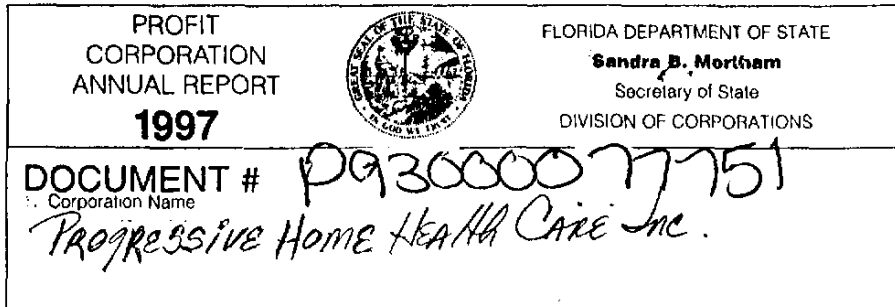 PROFIT
CORPORATION
ANNUAL REPORT
1997
GREAT SEAL OF THE STATE OF FLORIDA
IN GOD WE TRUST
FLORIDA DEPARTMENT OF STATE
Sandra B. Mortham
Secretary of State
DIVISION OF CORPORATIONS
DOCUMENT # P93000077751
1. Corporation Name
PROgRESSIVE HOME HEAlth CARE Inc.